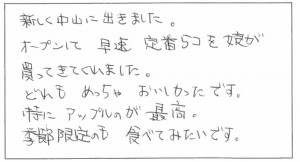 新しく中山に出きました。
オープンして 早速 定番5コを娘が
買ってきてくれました。
どれも めっちゃ おいしかったです。
特に アップルのが 最高。
季節限定のも 食べてみたいです。